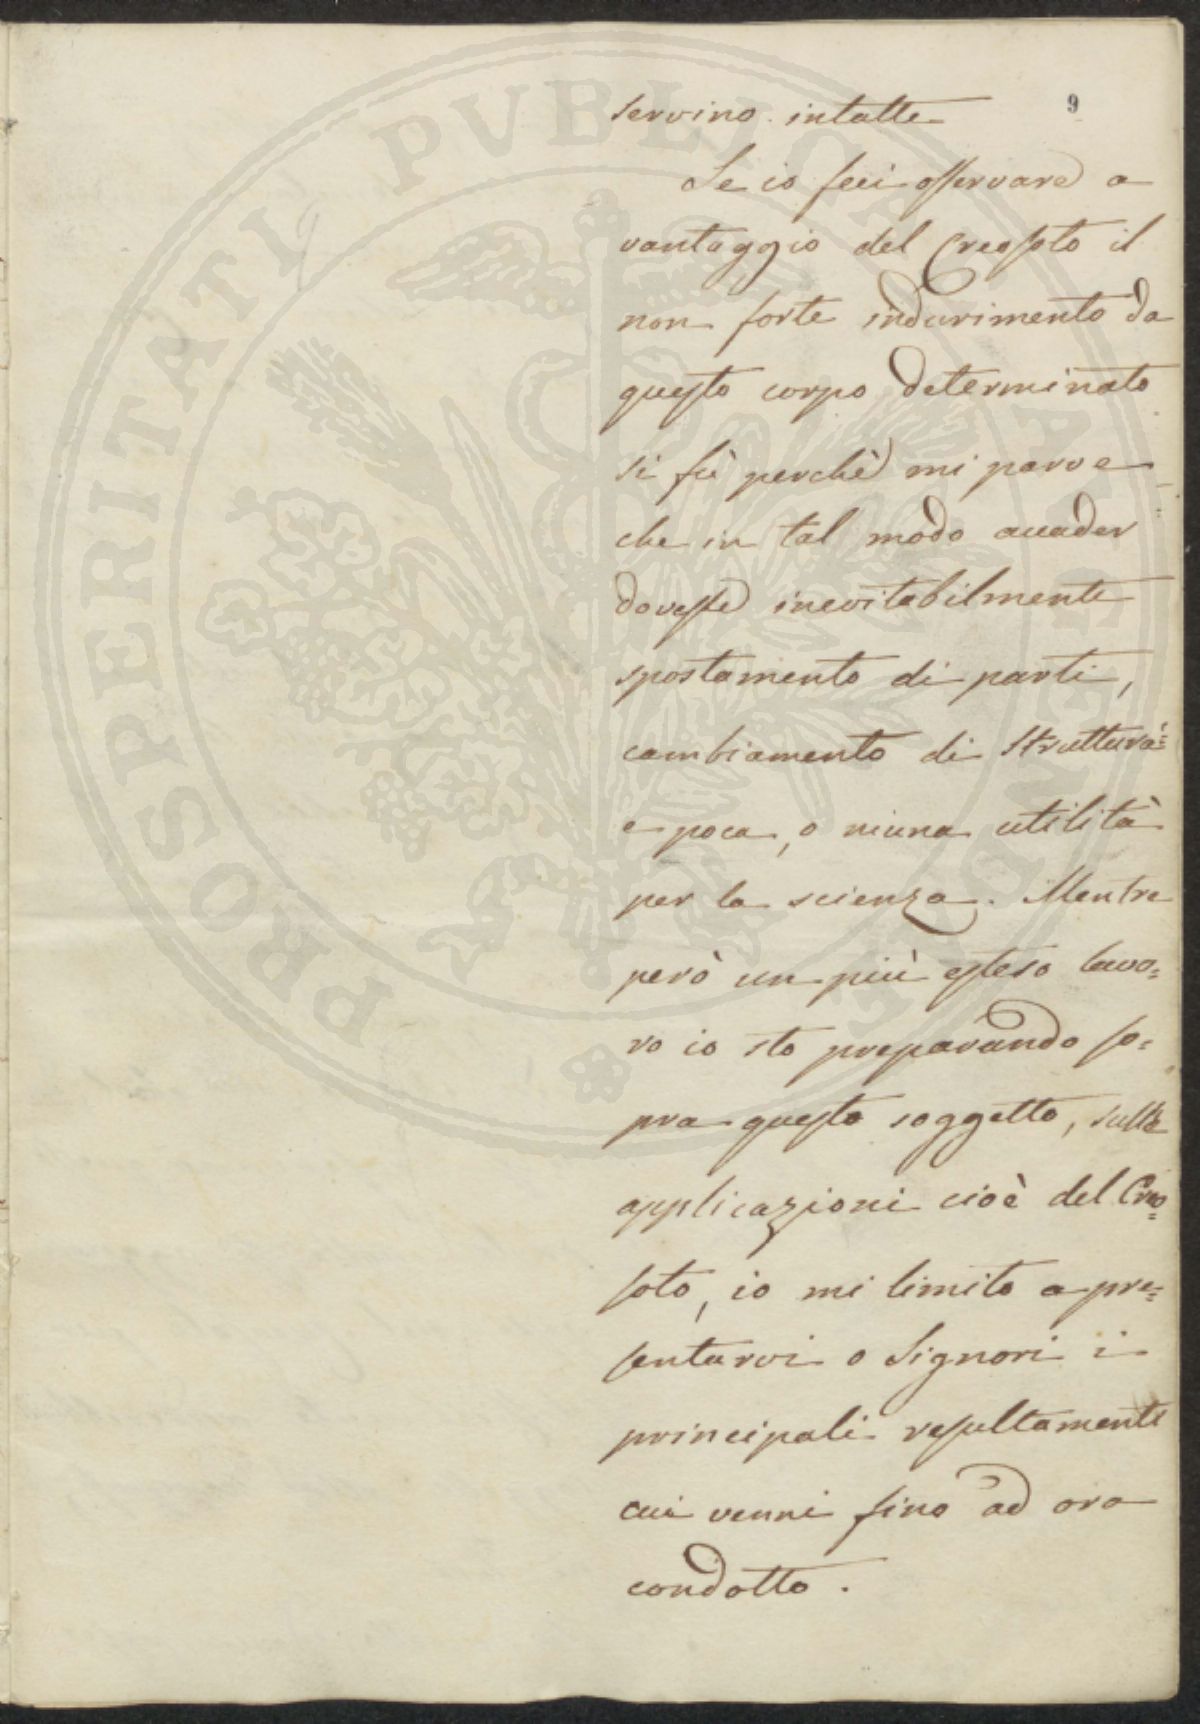 9
servino intatte
Se io feci osservare a
vantaggio del Creosoto il
non forte indurimento da
questo corpo determinato
si fù perchè mi parve
che in tal modo accader
dovesse inevitabilmente
spostamento di parti,
cambiamento di struttura=
e poca, o niuna utilità
per la scienza. Mentre
però un più esteso lavo=
ro io sto preparando so=
pra questo soggetto, sulle
applicazioni cioè del Creo=
soto, io mi limito a pre=
sentarvi o Signori i
principali resultamenti
cui venni fino ad ora
condotto.
PROSPERITATI PUBLICAE AUGENDAE